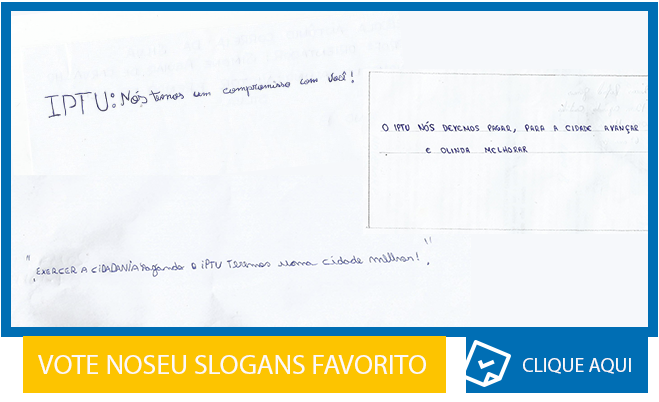 IPTU: Nós temos um compromisso com você!
O IPTU NÓS DEVEMOS PAGAR, PARA A CIDADE AVANÇAR
E OLINDA MELHORAR
"EXERCER A CIDADANIA Pagando O IPTU Teremos uma cidade melhor!"
VOTE NOSEU SLOGANS FAVORITO
CLIQUE AQUI